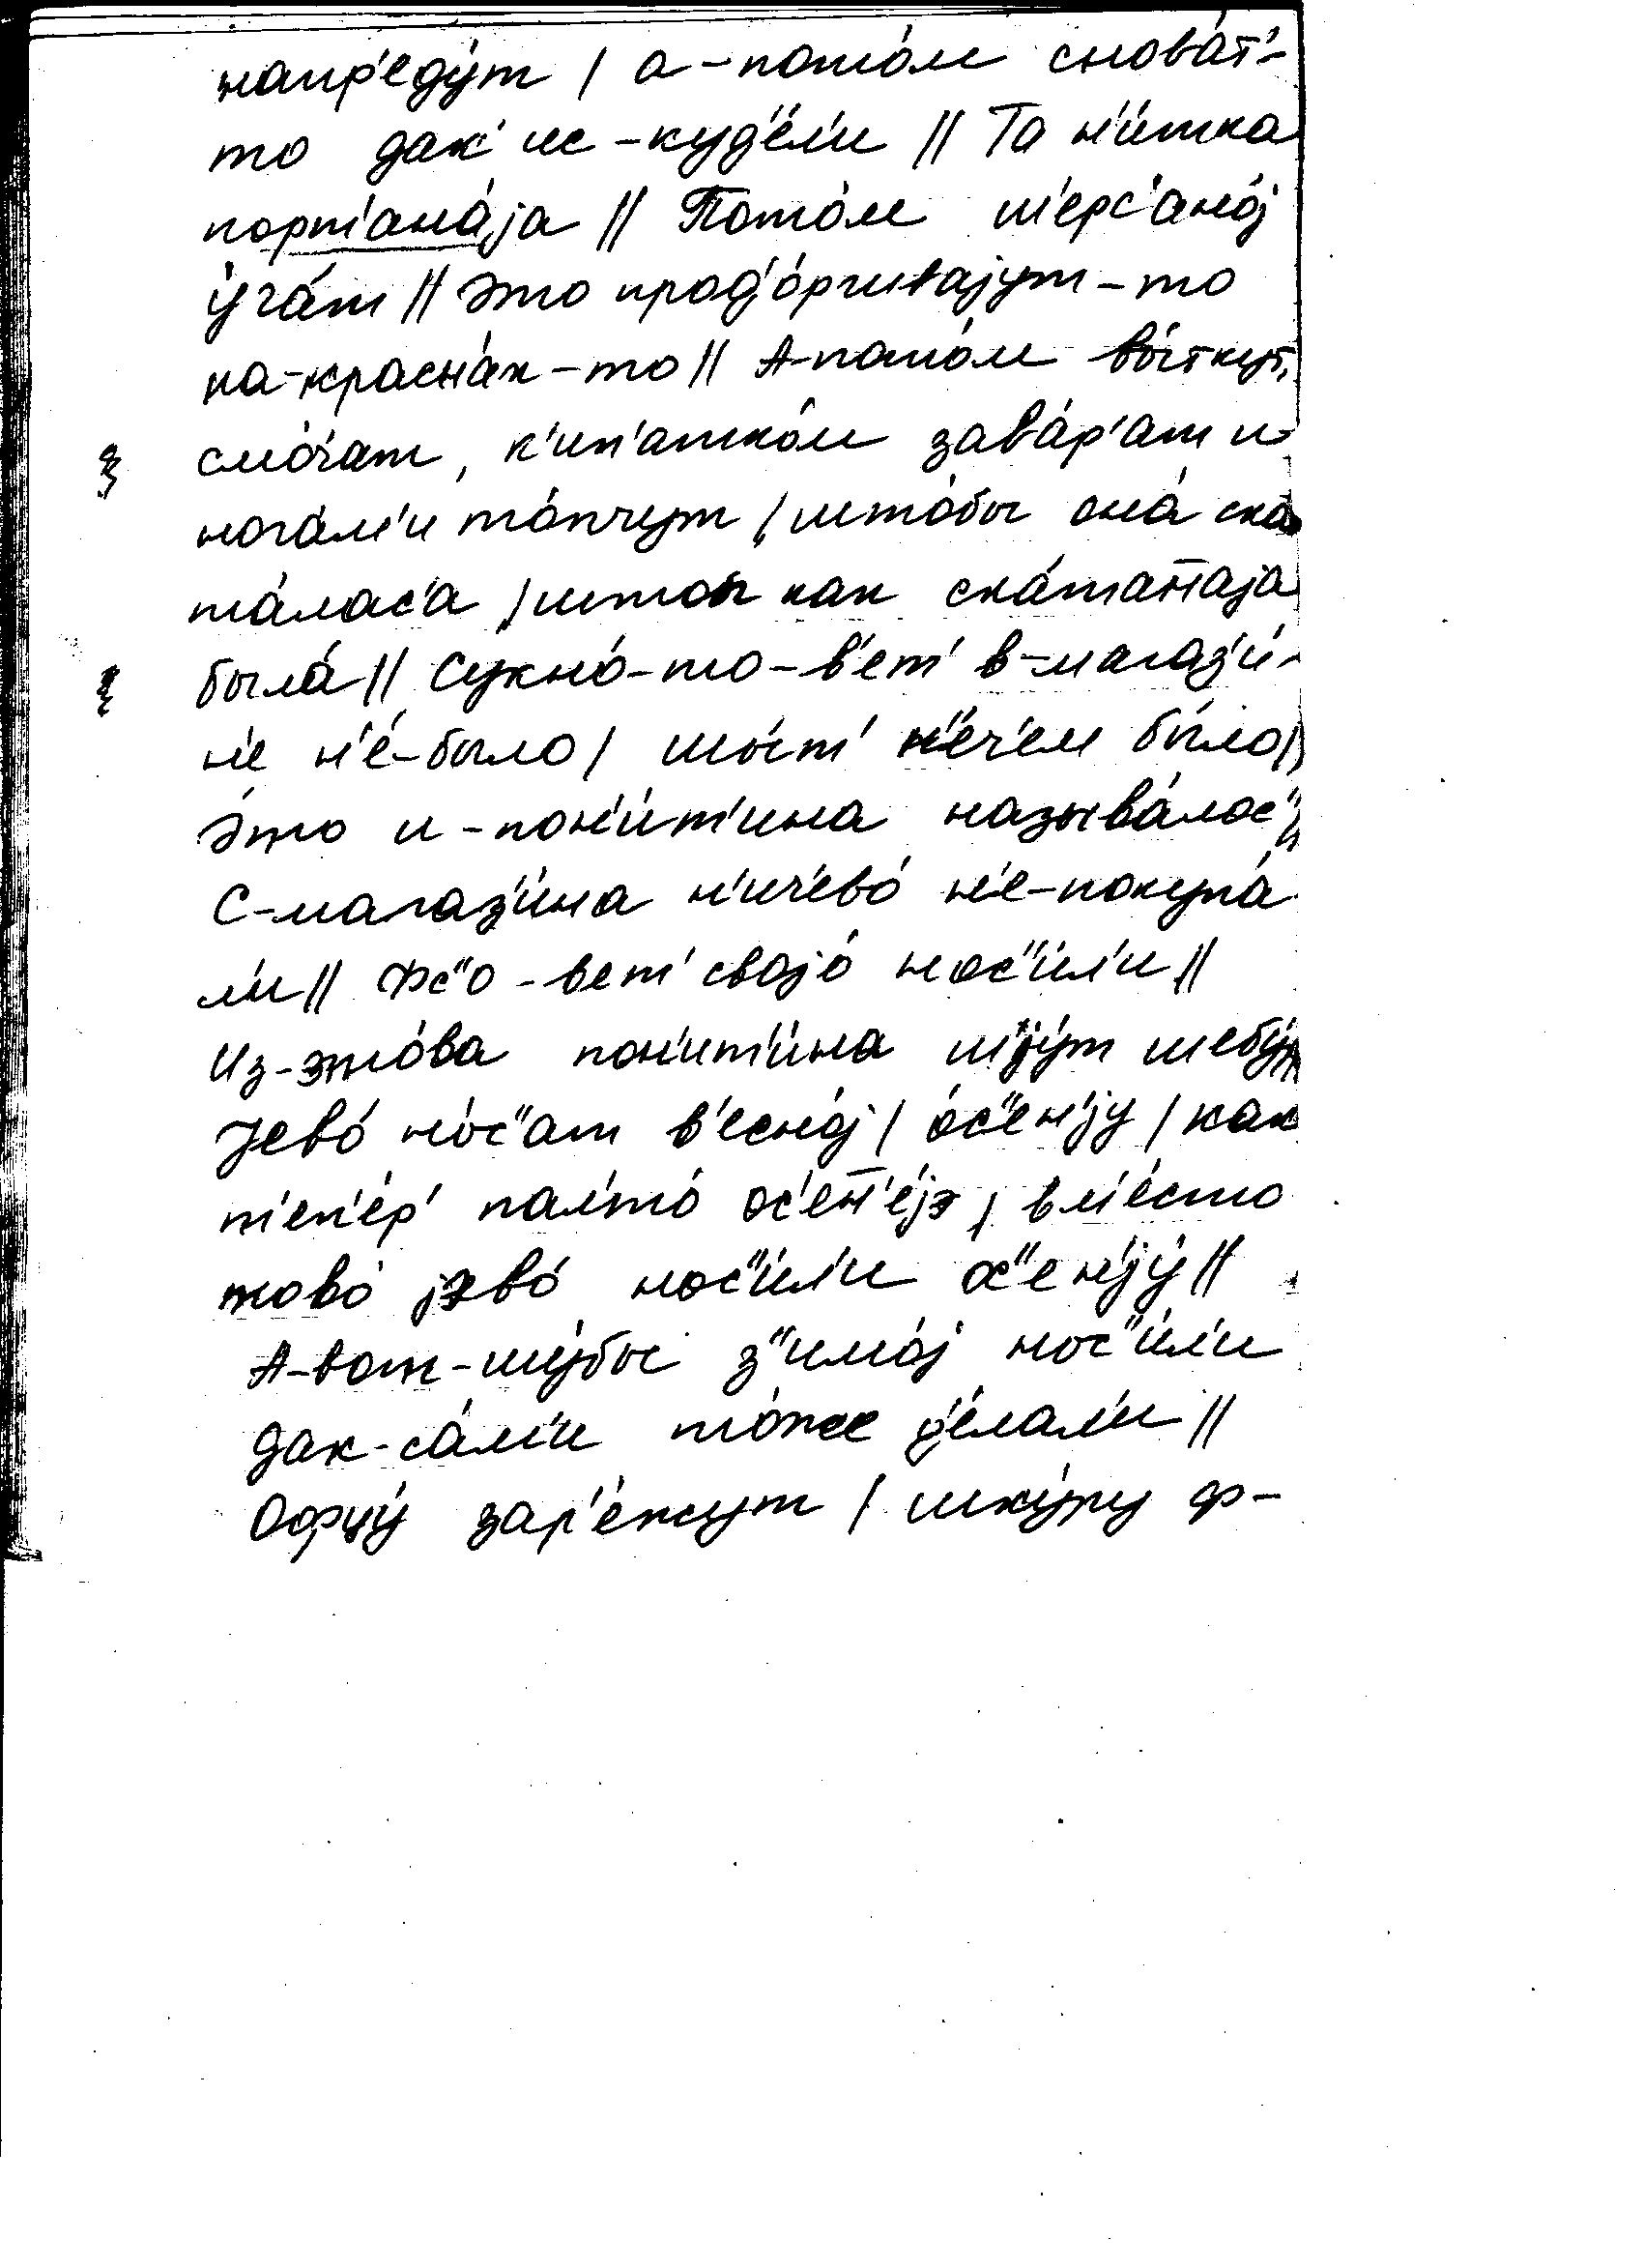 напр'еду́т / а-пото́мснова́т'-
то дак ис-куд'е́л'и // Та н'и́тка
порт'ана́jа // Пото́м ш'ерс'ано́j
у́ча́т // Это прод'о́ргиваjут-то
на-кра́снах-то // А-пото́м вы́ткут,
смо́чат, к'ип'атко́м зава́р'ат и-
нога́м'и то́пчут / што́бы она́ ска
та́лас'а / штоп как ска́тан̄аjа
была́ // Сукно́-то-в'ет' в-магаз'и́-
н'е н'е́-было / шы́т' н'е́ч'ем бы́ло //
Э́то и-пон'и́т'ина называ́лос" //
С-магаз'и́на н'ич'ево́ н'е-покупа́
л'и // Фс"о-вет' своjо́ нос"и́л'и //
Из-это́ва пон'ит'и́на шjу́т шебу́р //
Jево́ но́с"ат в'есно́j / о́с"ен'jу / как
т'еп'е́р' пал'то́ ос'ен̄'еjэ, вм'е́сто
тово́ jэво́ нос"и́л'и ос"ен'jу́ //
А-вот-шу́бы з"имо́j нос"и́л'и
дак-са́м'и то́же д'е́лал'и //
Офцу́ зар'е́жут / шку́ру ф-